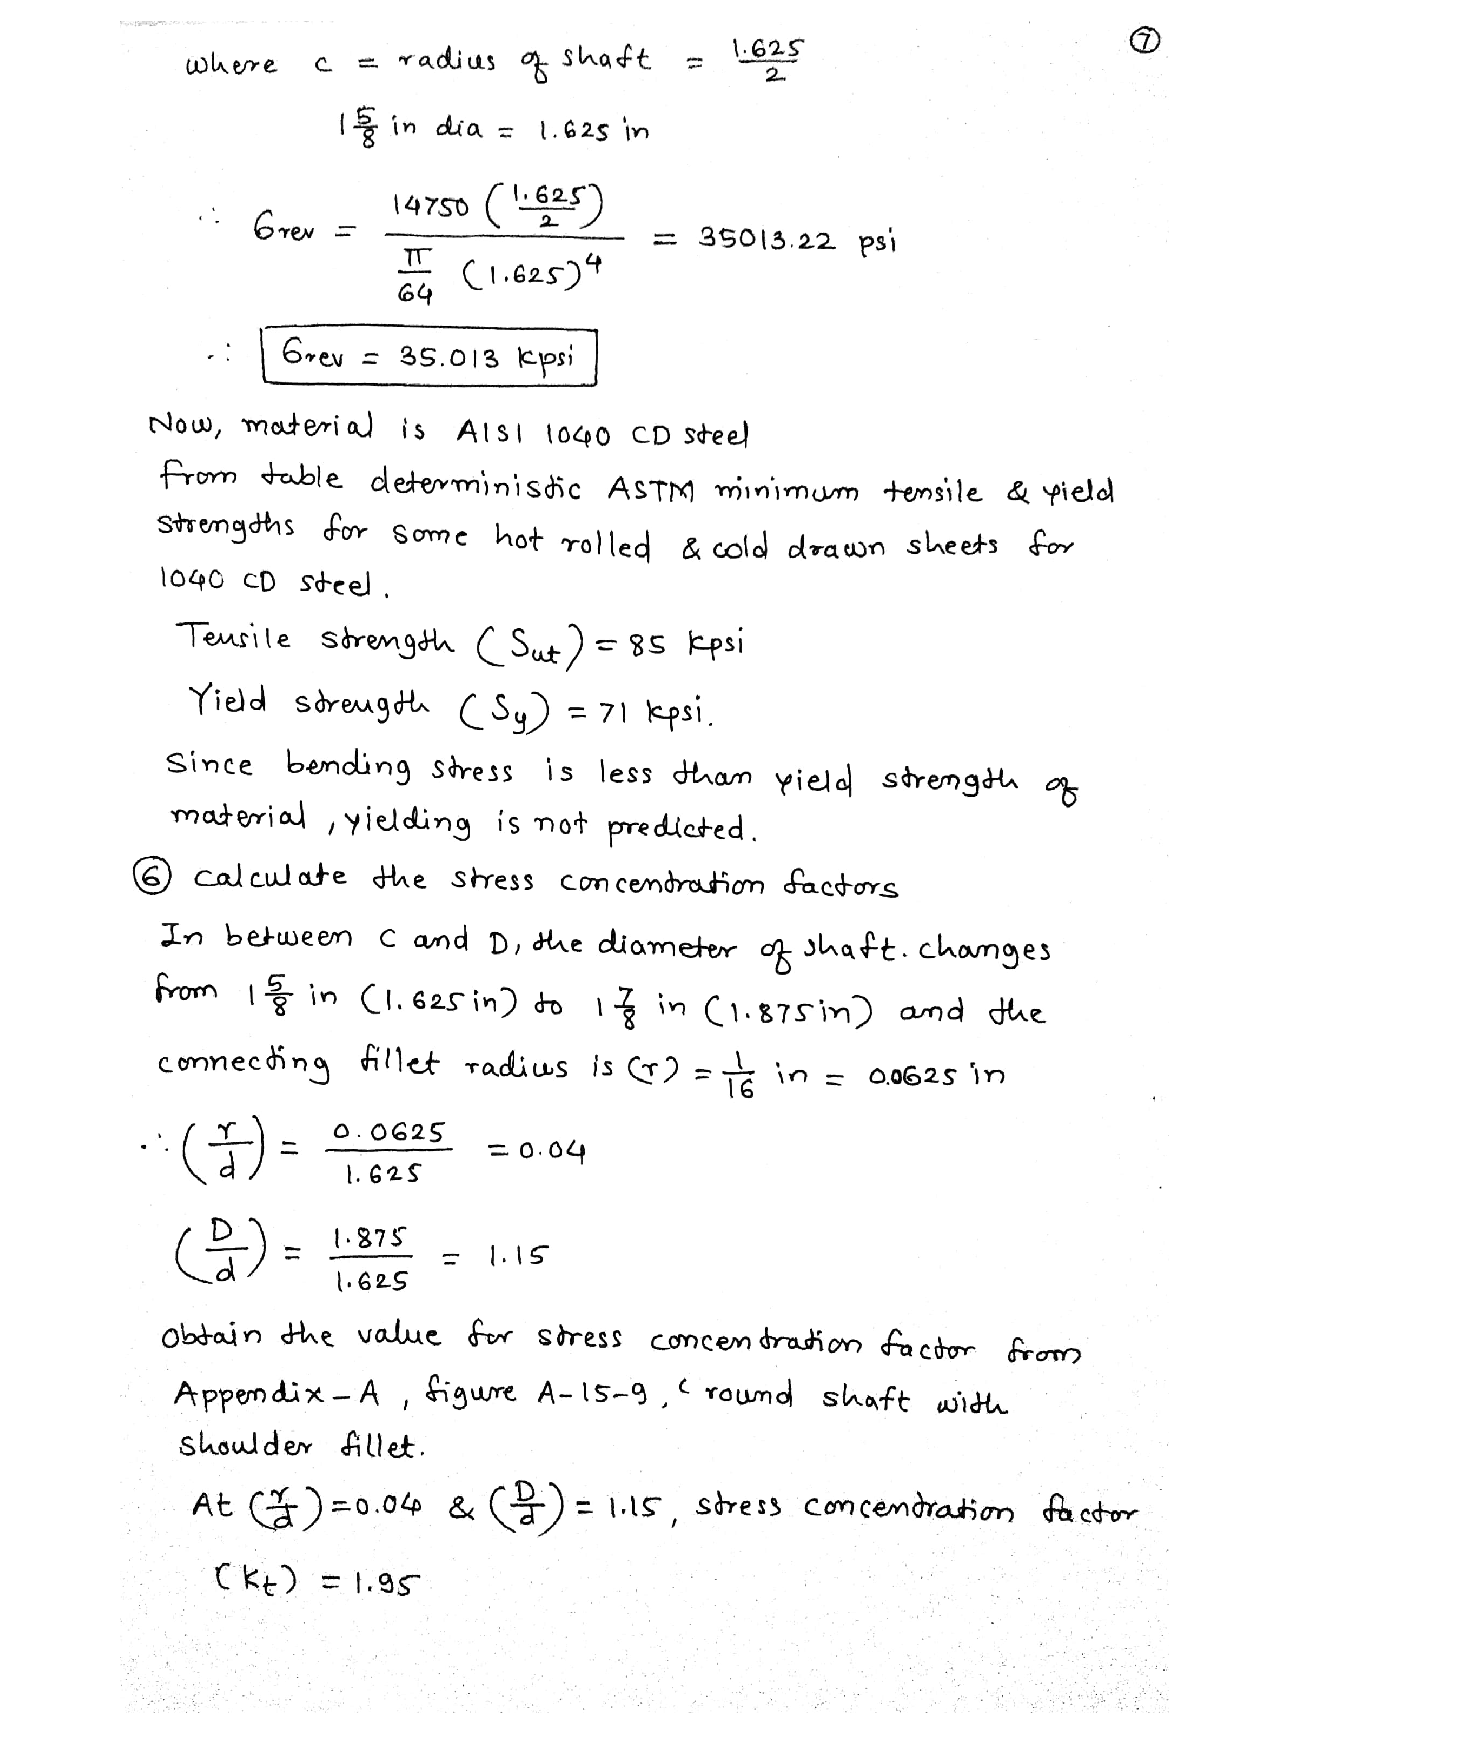 ⑦
where c = radius of shaft = 1.625/2
1 5/8 in dia = 1.625 in
∴ σrev = 14750 (1.625/2) / (π/64 (1.625)^4) = 35013.22 psi
∴ σrev = 35.013 kpsi
Now, material is AISI 1040 CD steel
from table deterministic ASTM minimum tensile & yield
strengths for some hot rolled & cold drawn sheets for
1040 CD steel.
Tensile strength (Sut) = 85 kpsi
Yield strength (Sy) = 71 kpsi.
Since bending stress is less than yield strength of
material, yielding is not predicted.
⑥ calculate the stress concentration factors
In between C and D, the diameter of shaft. changes
from 1 5/8 in (1.625 in) to 1 7/8 in (1.875 in) and the
connecting fillet radius is (r) = 1/16 in = 0.0625 in
∴ (r/d) = 0.0625/1.625 = 0.04
(D/d) = 1.875/1.625 = 1.15
obtain the value for stress concentration factor from
Appendix-A, figure A-15-9, ( round shaft with
shoulder fillet.
At (r/d) = 0.04 & (D/d) = 1.15, stress concentration factor
(Kt) = 1.95